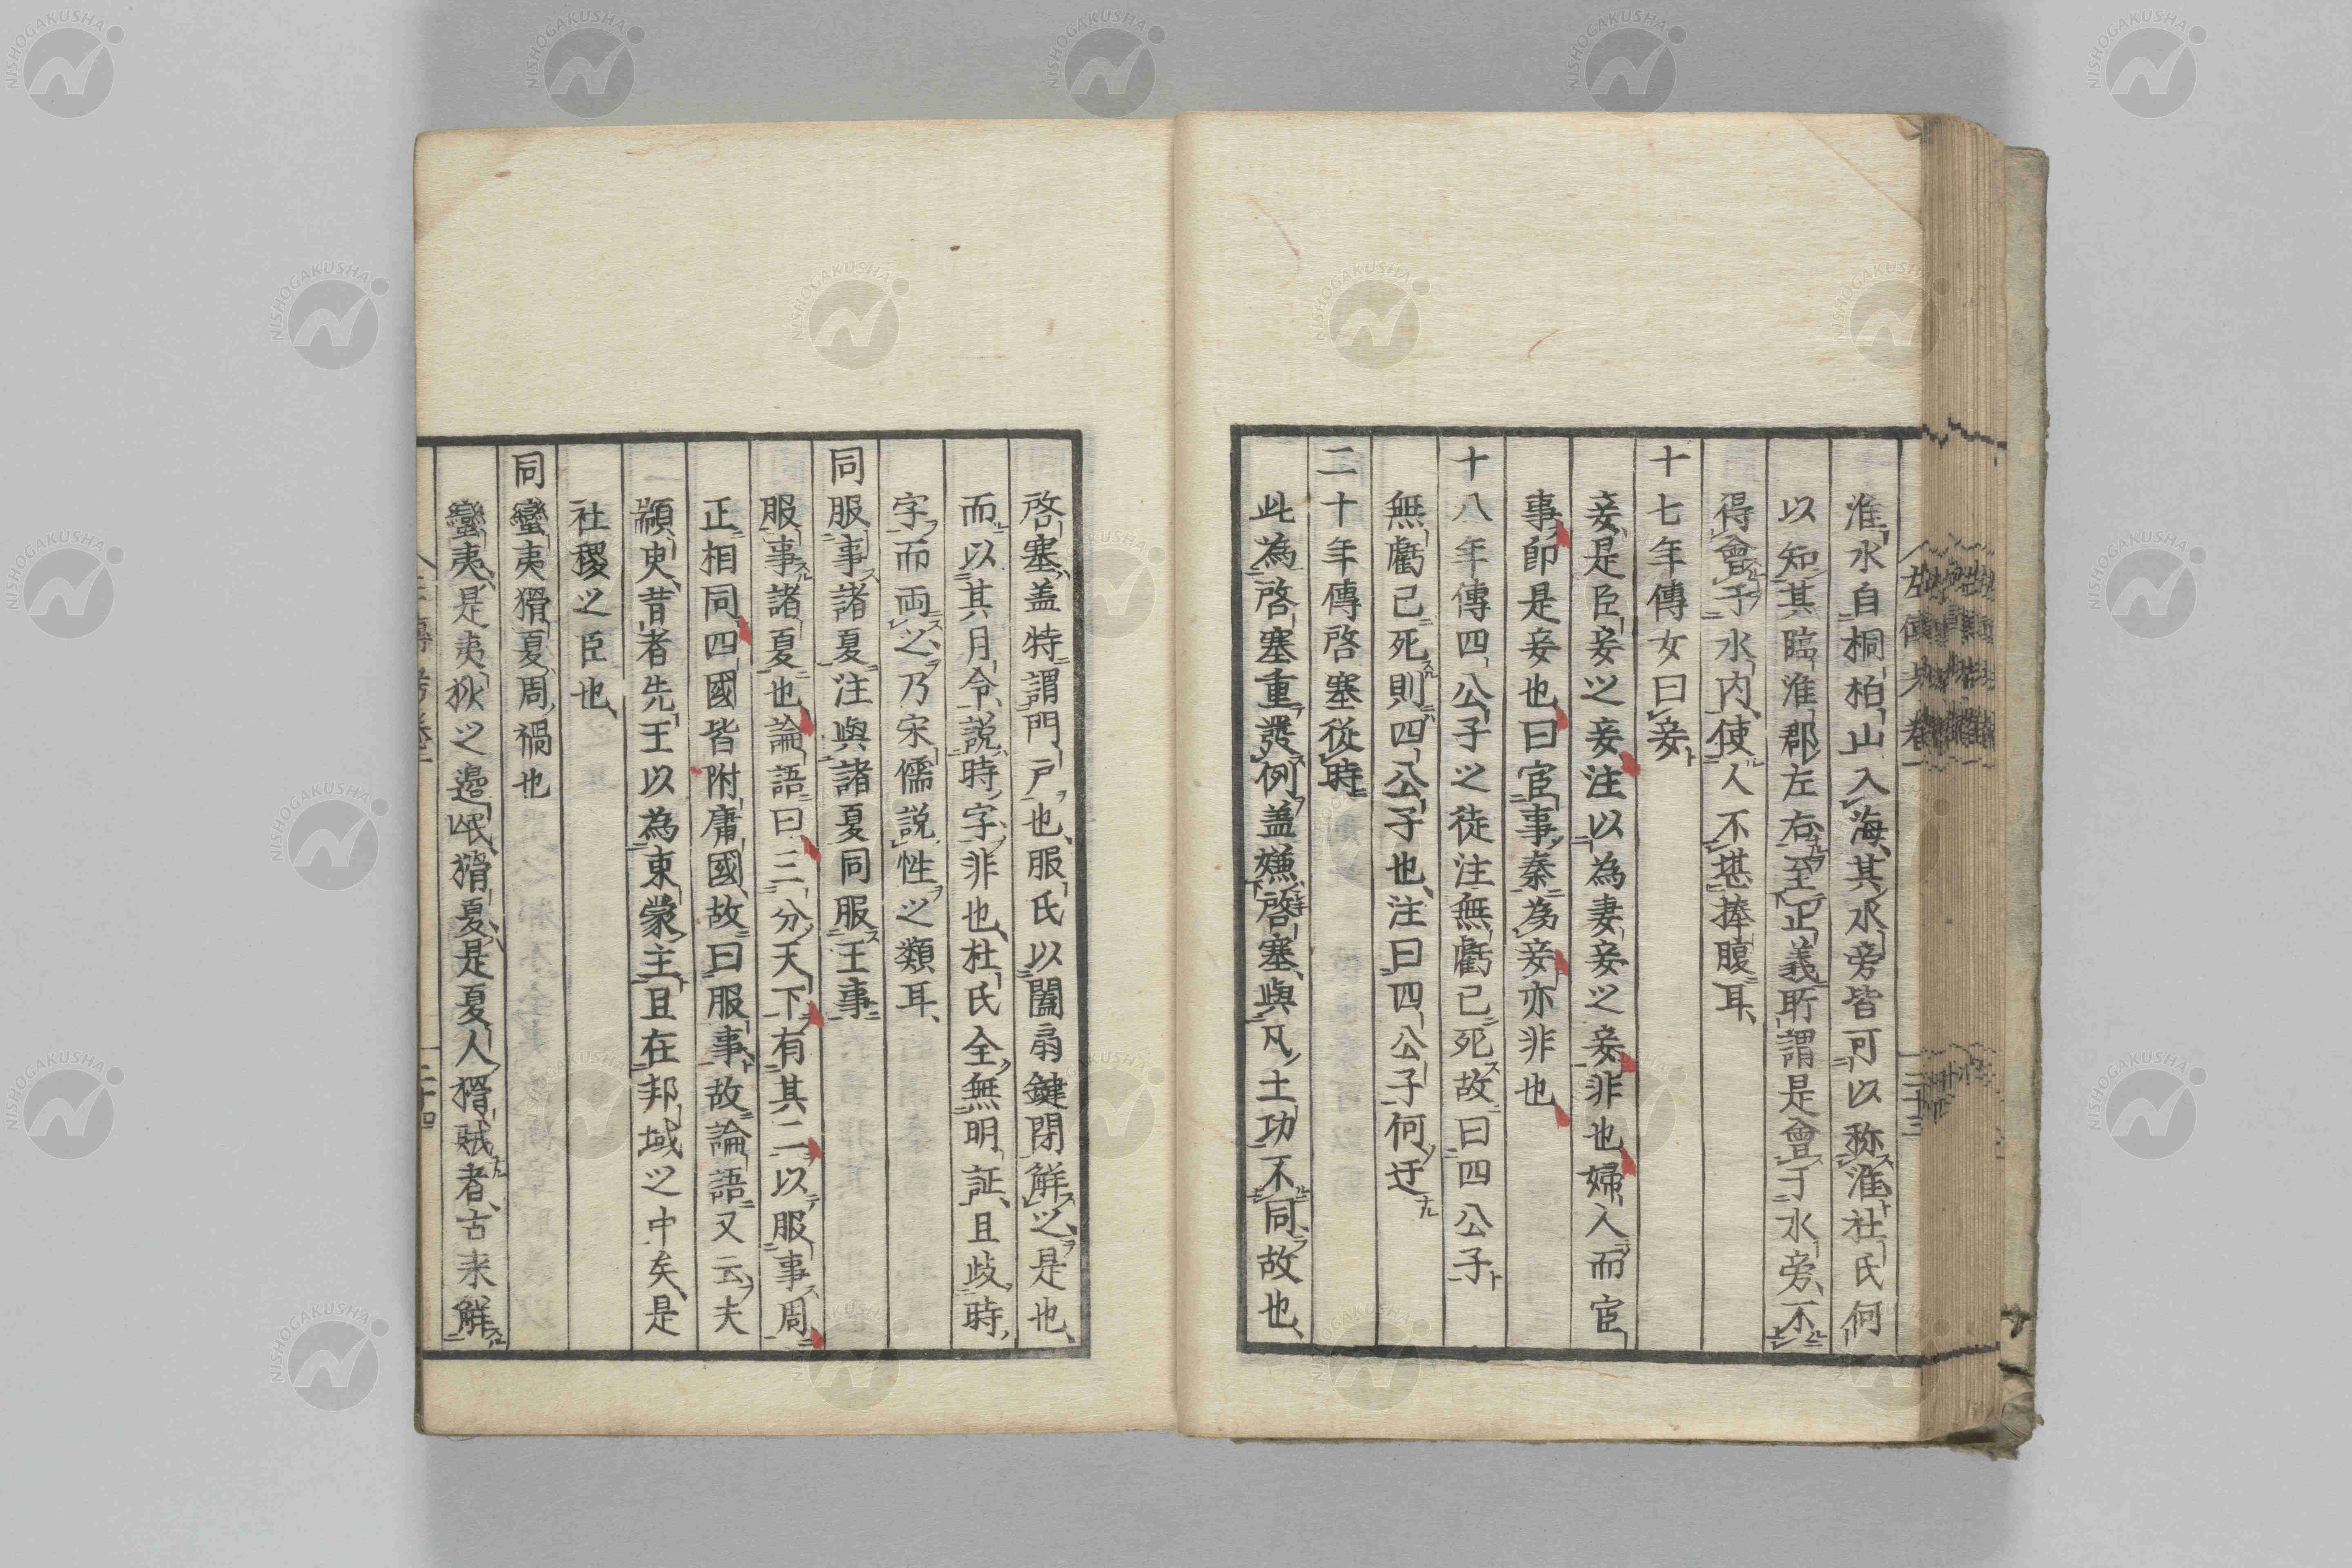 淮水自桐柏山入海其水旁皆可以称淮社氏何
以知其臨淮郡左右至正義所謂是會于水旁不
得會于水内使人不堪捧腹耳
十七年傳女曰妾
妾是臣妾之妾注以為妻妾之妾非也婦人而宦
事即是妾也曰宦事秦為妾亦非也
十八年傳四公子之徒注無虧已死故曰四公子
無虧已死則四公子也注曰四公子何迂
二十年傳啓塞從時
此為啓塞重發例盖嫌啓塞與凡土功不同故也
啓塞盖特謂門戸也服氏以闔扇鍵閉解之是也
而以其月令説時字非也杜氏全無明証且歧時
字而両之乃宋儒説性之類耳
同服事諸夏注與諸夏同服王事
服事諸夏也論語曰三分天下有其二以服事周
正相同四國皆附庸國故曰服事故論語又云夫
顓臾昔者先王以為東蒙主且在邦域之中矣是
社稷之臣也
同蠻夷猾夏周禍也
蠻夷是夷狄之邊氓猾夏是夏人猾賊者古来解